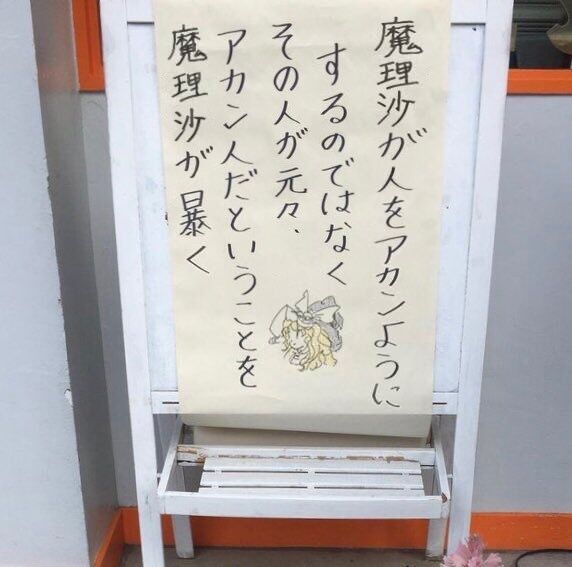 魔理沙が人をアカンように
するのではなく
その人が元々、
アカン人だということを
魔理沙が暴く